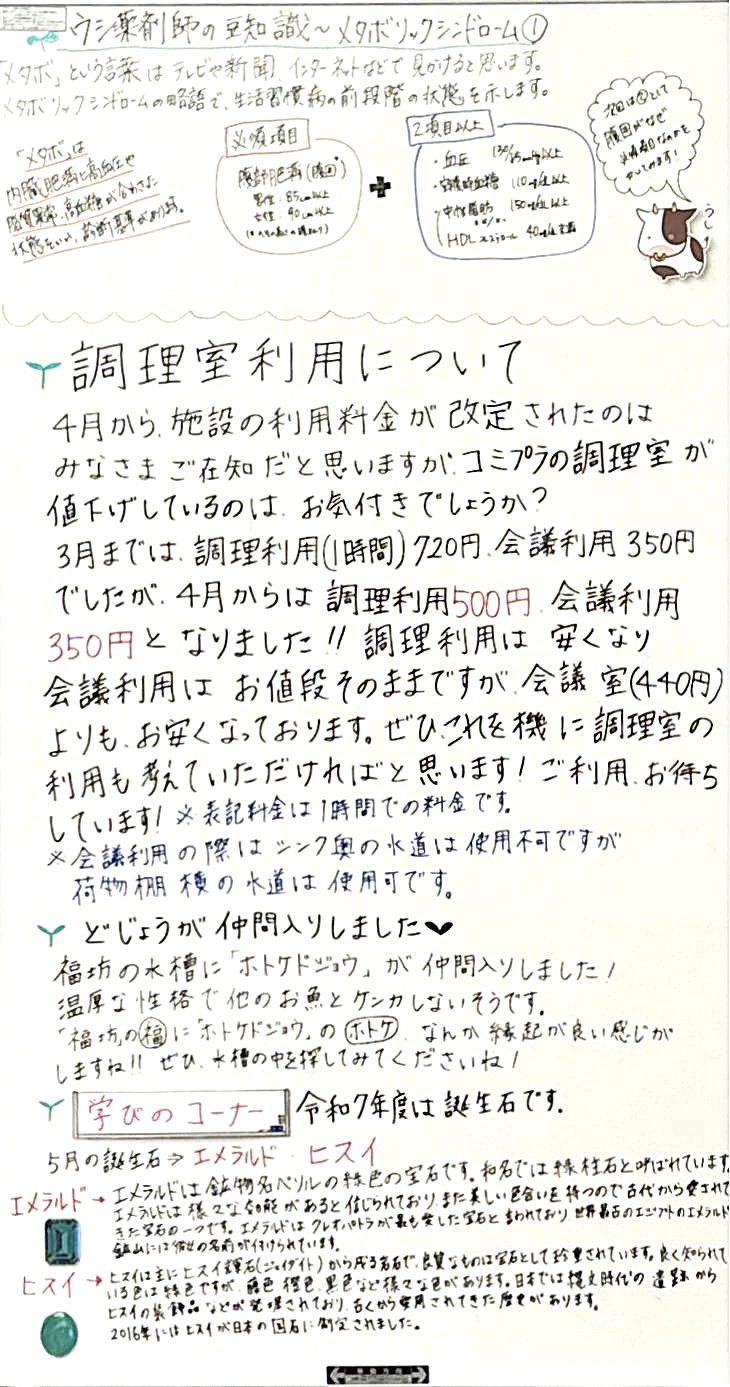 ウシ薬剤師の豆知識～メタボリックシンドローム①
「メタボ」という言葉はテレビや新聞、インターネットなどで見かけると思います。
メタボリックシンドロームの略語で、生活習慣病の前段階の状態を示します。
「メタボ」は
内臓肥満に高血圧や
脂質異常、高血糖が合わさった
状態をいい、診断基準があります。
必須項目
腹部肥満(腹囲)
男性：85cm以上
女性：90cm以上
+
2項目以上
・血圧 130/85mmHg以上
・空腹時血糖 110mg/dL以上
・中性脂肪 150mg/dL以上
HDLコレステロール 40mg/dL未満
次回は②として
腹囲がなぜ
必須項目なのかを
うし
調理室利用について
4月から、施設の利用料金が改定されたのは
みなさまご在知だと思いますが、コミプラの調理室が
値下げしているのは、お気付きでしょうか？
3月までは、調理利用(1時間)720円、会議利用350円
でしたが、4月からは調理利用500円、会議利用
350円となりました!!調理利用は安くなり
会議利用はお値段そのままですが、会議室(440円)
よりも、お安くなっております。ぜひ、これを機に調理室の
利用も考えていただければと思います！ご利用、お待ち
しています！※表記料金は1時間での料金です。
※会議利用の際はシンク奥の水道は使用不可ですが
荷物棚横の水道は使用可です。
どじょうが仲間入りしました
福坊の水槽に「ホトケドジョウ」が仲間入りしました！
温厚な性格で他のお魚とケンカしないそうです。
「福坊」の福に「ホトケドジョウ」のホトケ、なんか縁起が良い感じが
しますね!!ぜひ、水槽の中を探してみてくださいね！
学びのコーナー 令和7年度は誕生石です。
5月の誕生石⇒エメラルド・ヒスイ
エメラルド→エメラルドは鉱物名ベリルの緑色の宝石です。和名では緑柱石と呼ばれています。
エメラルドは様々な効能があると信じられており、また美しい色合いを持つので古代から愛されて
きた宝石の一つです。エメラルドはクレオパトラが最も愛した宝石と言われており、世界最古のエジプトのエメラルド
鉱山には彼女の名前が付けられています。
ヒスイ→ヒスイは主にヒスイ輝石(ジェイダイト)から成る岩石で、良質なものは宝石として珍重されています。良く知られて
いる色は緑色ですが、藤色、橙色、黒色など様々な色があります。日本では縄文時代の遺跡から
ヒスイの装飾品などが発掘されており、古くから愛用されてきた歴史があります。
2016年にはヒスイが日本の国石に制定されました。